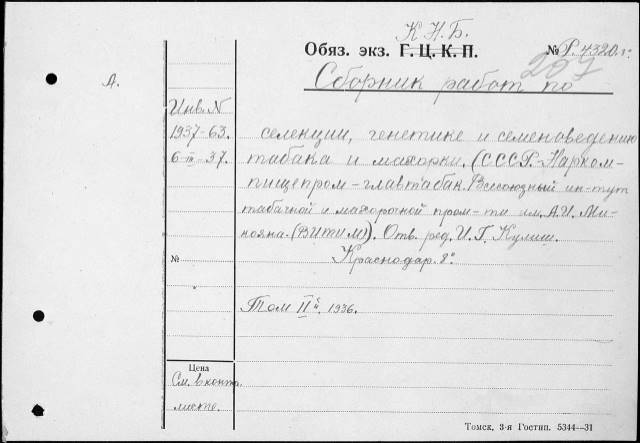 К. Н. Б.
Обяз. экз. Г. Ц. К. П. № Р. 4320 г.
207
А.
Сборник работ по
Инв. N
1937-63.
6-III-37.
селекции, генетике и семеноведению
табака и махорки. (СССР.-Нарком-
пищепром-главтабак. Всесоюзный ин-тут
табачной и махорочной пром-ти им. А.И. Ми-
кояна. (ВИТИМ)). Отв. ред. И. Г. Кулиш.
№ Краснодар. 8°
Том II й. 1936.
Цена
См. в контр.
листке.
Томск, 3-я Гостип. 5344—31